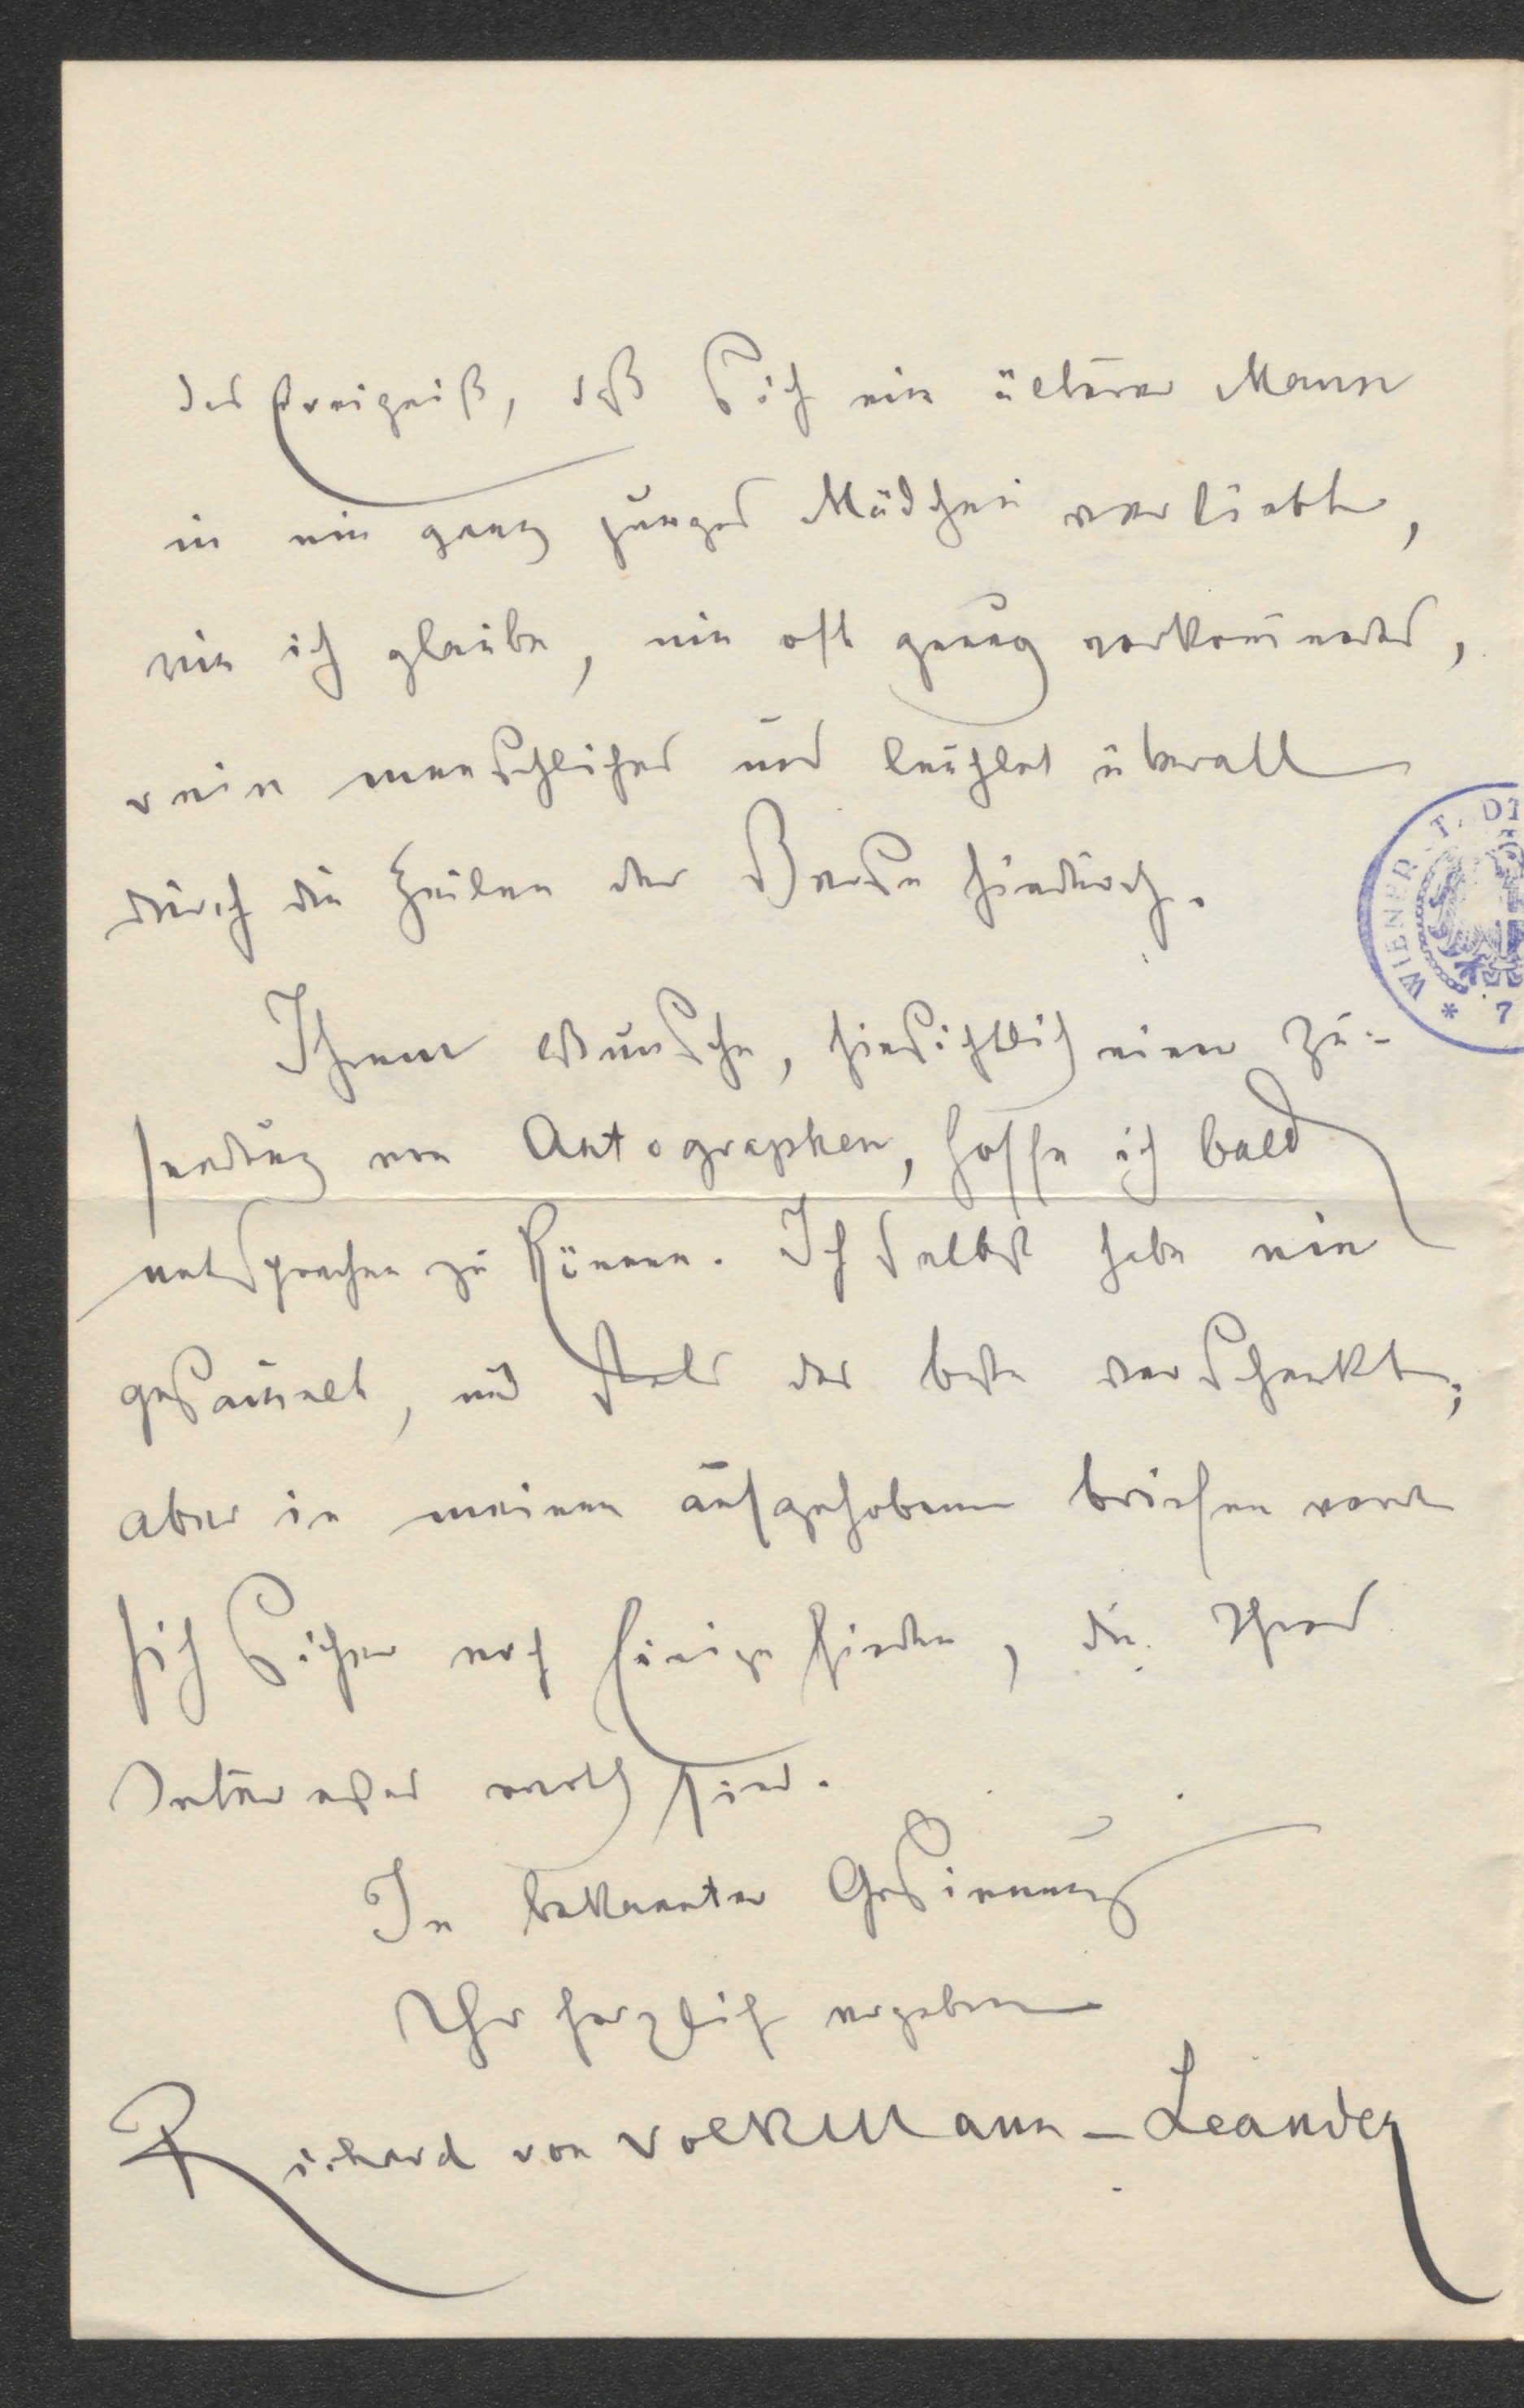 das Ereigniß, daß sich ein älterer Mann
in ein ganz junges Mädchen verliebt,
wie ich glaube, nie oft genug vorkommendes,
rein menschliches und leuchtet überall
durch die Zeilen der Verse hindurch.
Ihrem Wunsche, hinsichtlich einer Zu-
sendung von Autographen, hoffe ich bald
entsprechen zu können. Ich selbst habe nie
gesam̄elt, und stets das beste verschenkt;
aber in meinen aufgehobenen briefen werden
sich sicher noch Einige finden, die Ihres
Interesses werth sind.
In bekannter Gesinnung
Ihr herzlich ergebener
Richard von Volkmann-Leander
WIENER STADT
* 7